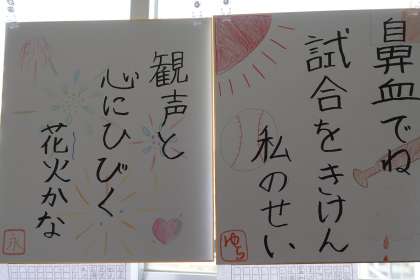 鼻血でね
試合をきけん
私のせい
ゆら
観声と
心にひびく
花火かな
永